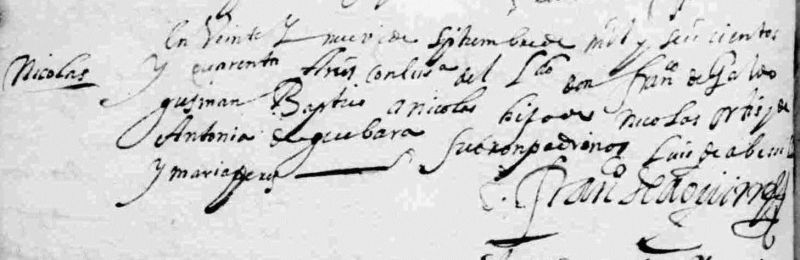 En Veinte y nueve de septembre de mil y seiscientos
Nicolas
y quarenta tres con lisa del Ldo don franco de Galdo
gusman Baptiso a nicolas hijo de Nicolas ortis y de
Antonia de guebara fueron padrinos Luis de
y maria peres
franco de aguirre